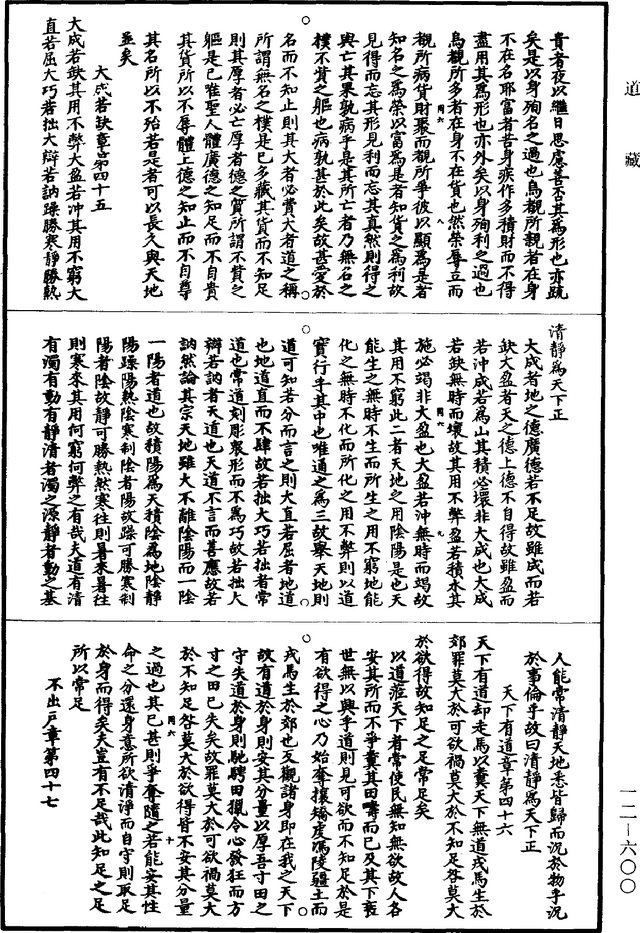 道藏
貴者夜以繼日思慮善否其為形也亦疏
矣是以身殉名之過也烏覩所親者在身
不在名耶富者苦身疾作多積財而不得
盡用其為形也亦外矣以身殉利之過也
烏覩所多者在身不在貨也然榮辱立而
覩所病貨財聚而覩所爭彼以顯為是者
知名之為榮以富為是者知貨之為利故
見得而忘其形見利而忘其真然則得之
與亡其果孰病乎是其所亡者乃無名之
樸不貲之軀也病孰甚於此矣故甚愛於
名而不知止則其大者必費大者道之稱
所謂無名之樸是已多藏其貨而不知足
則其厚者必亡厚者德之質所謂不貲之
軀是已唯聖人體廣德之知足而不自貴
其貨所以不辱體上德之知止而不自尊
其名所以不殆若是者可以長久與天地
並矣
大成若缺章第四十五
大成若缺其用不弊大盈若沖其用不窮大
直若屈大巧若拙大辯若訥躁勝寒靜勝熱
清靜為天下正
大成者地之德廣德若不足故雖成而若
缺大盈者天之德上德不自得故雖盈而
若沖成若為山其積必壞非大成也大成
若缺無時而壞故其用不弊盈若積水其
施必竭非大盈也大盈若沖無時而竭故
其用不窮此二者天地之用陰陽是也天
能生之無時不生而所生之用不窮地能
化之無時不化而所化之用不弊則以道
寶行乎其中也唯通之為三故舉天地則
道可知若分而言之則大直若屈者地道
也地道直而不肆故若拙大巧若拙者常
道也常道刻彫眾形而不為巧故若拙大
辯若訥者天道也天道不言而善應故若
訥然論其宗天地雖大不離陰陽而一陰
一陽者道也故積陽為天積陰為地陰靜
陽躁陽熱陰寒制陰者陽故躁可勝寒制
陽者陰故靜可勝熱然寒往則暑來暑往
則寒來其用何窮何弊之有哉天道有清
有濁有動有靜清者濁之源靜者動之基
人能常清靜天地悉皆歸而況於物乎況
於事倫乎故曰清靜為天下正
天下有道章第四十六
天下有道却走馬以糞天下無道戎馬生於
郊罪莫大於可欲禍莫大於不知足咎莫大
於欲得故知足之足常足矣
以道莅天下者常使民無知無欲故人各
安其所而不爭糞其田疇而已及其下衰
世無以興乎道則見可欲而不知足於是
有欲得之心乃始奪攘矯虔馮陵疆土而
戎馬生於郊也反觀諸身即在我之天下
故有道於身則安其分量以厚吾寸田之
守失道於身則馳騁田獵令心發狂而方
寸之田已失矣故罪莫大於可欲禍莫大
於不知足咎莫大於欲得皆不安其分量
之過也其已甚則爭奪隨之若能安其性
命之分還身意所欲清淨而自守則取足
於身而得矣夫豈有不足哉此知足之足
所以常足
不出戶章第四十七
一二—六〇〇